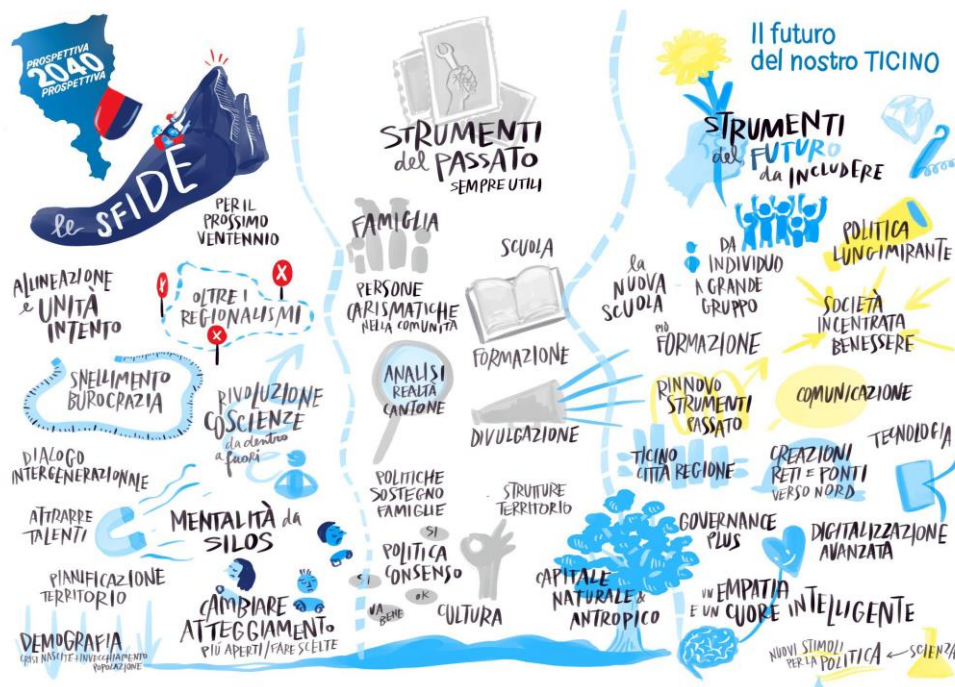 PROSPETTIVA
2040
PROSPETTIVA
le SFIDE
PER IL
PROSSIMO
VENTENNIO
AllINEAZIONE
e UNITÀ
INTENTO
OLTRE I
REGIONALISMI
X
X
SNELLIMENTO
BUROCRAZIA
RIVOLUZIONE
COSCIENZE
da dentro
a fuori
DIALOGO
INTERGENERAZIONALE
ATTRARRE
TALENTI
MENTALITÀ da
SILOS
PIANIFICAZIONE
TERRITORIO
CAMBIARE
ATTEGGIAMENTO
PIÙ APERTI/FARE SCELTE
DEMOGRAFIA
CRISI NASCITE + INVECCHIAMENTO
POPOLAZIONE
STRUMENTI
del PASSATO
SEMPRE UTILI
FAMIGLIA
SCUOLA
PERSONE
CARISMATICHE
NELLA COMUNITÀ
FORMAZIONE
ANALISI
REALTÀ
CANTONE
DIVULGAZIONE
POLITICHE
SOSTEGNO
FAMIGLIE
STRUTTURE
TERRITORIO
SI
POLITICA
CONSENSO
SI
OK
VA
BENE
CULTURA
CAPITALE
NATURALE &
ANTROPICO
Il futuro
del nostro TICINO
STRUMENTI
del FUTURO
da INCLUDERE
la
NUOVA
SCUOLA
DA
INDIVIDUO
A GRANDE
GRUPPO
POLITICA
LUNGIMIRANTE
PIÙ
FORMAZIONE
SOCIETÀ
INCENTRATA
BENESSERE
RINNOVO
STRUMENTI
PASSATO
COMUNICAZIONE
TICINO
CITTÀ REGIONE
CREAZIONI
RETI E PONTI
VERSO NORD
TECNOLOGIA
GOVERNANCE
PLUS
DIGITALIZZAZIONE
AVANZATA
UN EMPATIA
E UN CUORE INTELLIGENTE
NUOVI STIMOLI
PER LA POLITICA
SCIENZA